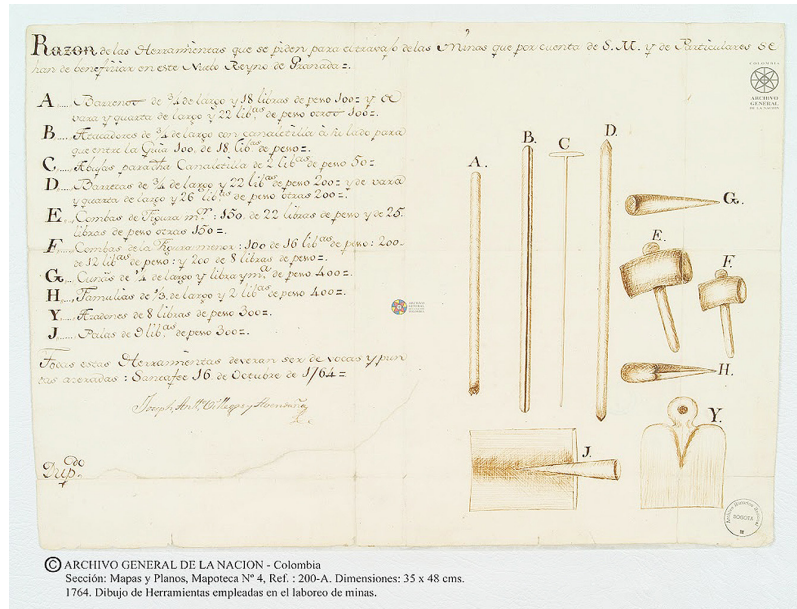 Razon de las Herramientas que se piden para el travajo de las Minas que por cuenta de S. M. y de Particulares se
han de beneficiar en este Nuebo Reyno de Granada=.
A...... Barrenos de ¾ de largo y 18 libras de peso 100= y de
vara y quarta de largo y 22 lib.as de peso otros 100=.
B...... Atacadores de ¾ de largo con canaletilla à su lado para
que entre la Guia 100, de 18 lib.as de peso=.
C...... Abujas para dha Canaletilla de 2 lib.as de peso 50=
D...... Barretas de ¾ de largo y 22 lib.as de peso 200= y de vara
y quarta de largo y 26 lib.as de peso otras 200=.
E...... Combas de Figura m.or: 150. de 22 libras de peso y de 25
libras de peso otras 150=.
F...... Combas de la Figura menor: 100 de 16 lib.as de peso: 200
de 12 lib.as de peso: y 200 de 8 libras de peso=.
G...... Cuñas de ¼ de largo y libra y m.a de peso 400=.
H...... Familias de ⅓ de largo y 2 lib.as de peso 400=.
Y...... Azadones de 8 libras de peso 300=.
J...... Palas de 9 lib.as de peso 300=.
Todas estas Herramientas deveran ser de vocas y pun
tas azeradas: Santafeè 16 de Octubre de 1764=
Joseph Ant.o Villegas y Avendaño
Dup.do
A.
B.
C
D.
G.
E.
F.
H.
J.
Y.
COLOMBIA
ARCHIVO
GENERAL
DE LA NACION
ARCHIVO
GENERAL
BOGOTA
© ARCHIVO GENERAL DE LA NACION - Colombia
Sección: Mapas y Planos, Mapoteca Nº 4, Ref. : 200-A. Dimensiones: 35 x 48 cms.
1764. Dibujo de Herramientas empleadas en el laboreo de minas.